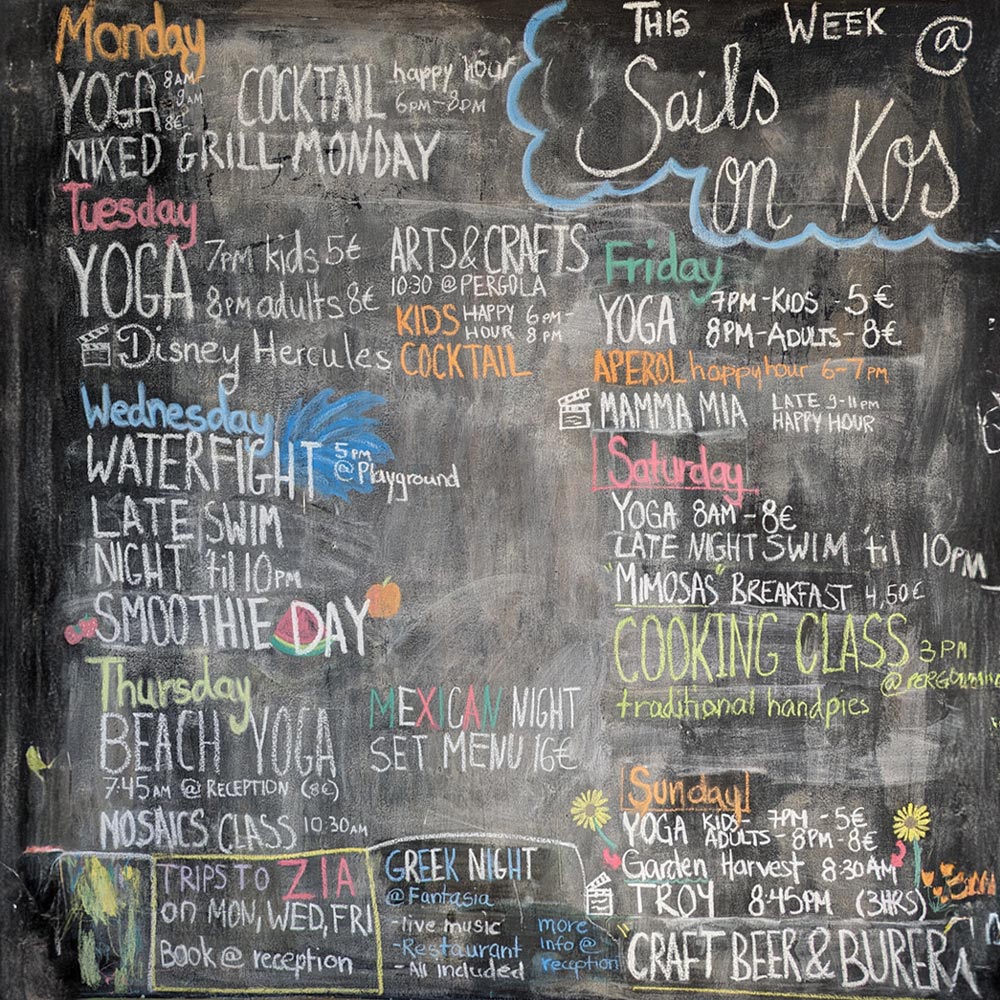 THIS WEEK @
Sails
on Kos
Monday
YOGA 8AM-
9AM
8€
COCKTAIL happy hour
6PM-8PM
MIXED GRILL MONDAY
Tuesday
YOGA 7PM kids 5€
8PM adults 8€
Disney Hercules
ARTS & CRAFTS
10:30 @ PERGOLA
KIDS HAPPY 6PM-
HOUR 8PM
COCKTAIL
Wednesday
WATERFIGHT 5PM
@ Playground
LATE SWIM
NIGHT 'til 10PM
SMOOTHIE DAY
Thursday
BEACH YOGA
7:45AM @ RECEPTION (8€)
MOSAICS CLASS 10:30AM
MEXICAN NIGHT
SET MENU 16€
TRIPS TO ZIA
on MON, WED, FRI
Book @ reception
GREEK NIGHT
@ Fantasia
-live music
-Restaurant
-All included
more
info @
reception
Friday
YOGA 7PM-KIDS - 5€
8PM-ADULTS-8€
APEROL happy hour 6-7PM
MAMMA MIA LATE 9-11PM
HAPPY HOUR
Saturday
YOGA 8AM-8€
LATE NIGHT SWIM 'til 10PM
"MIMOSAS" BREAKFAST 4,50€
COOKING CLASS 3PM
traditional handpies
Sunday
YOGA KIDS- 7PM-5€
ADULTS-8PM-8€
Garden Harvest 8:30AM
TROY 8:45PM (3HRS)
"CRAFT BEER & BURERA